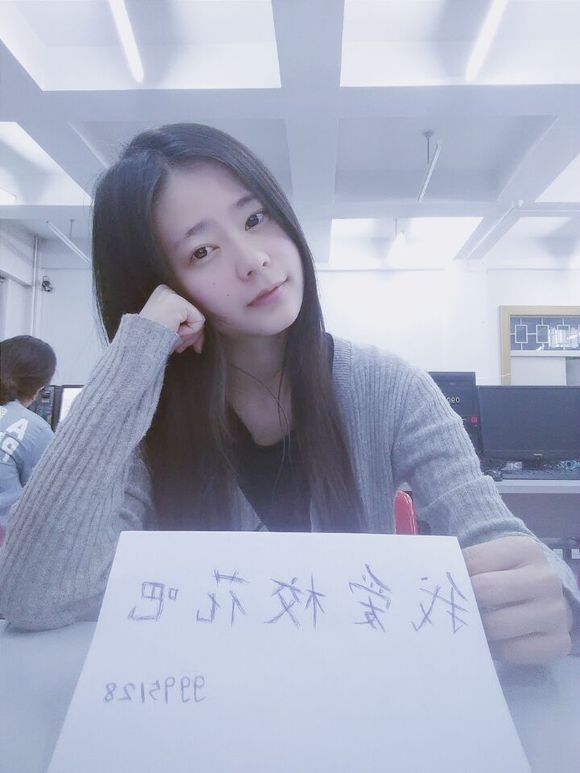 我爱校花吧
9995128